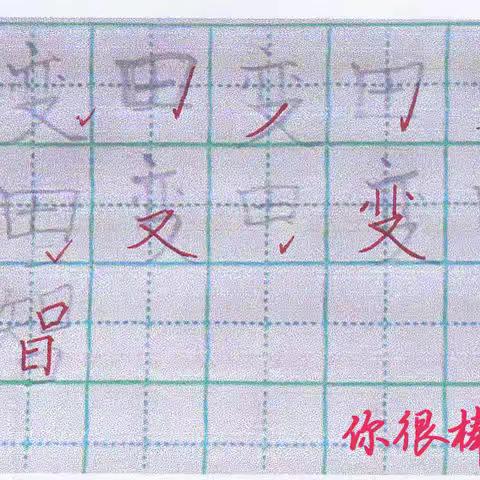 变田变田
田变田变
智
你很棒